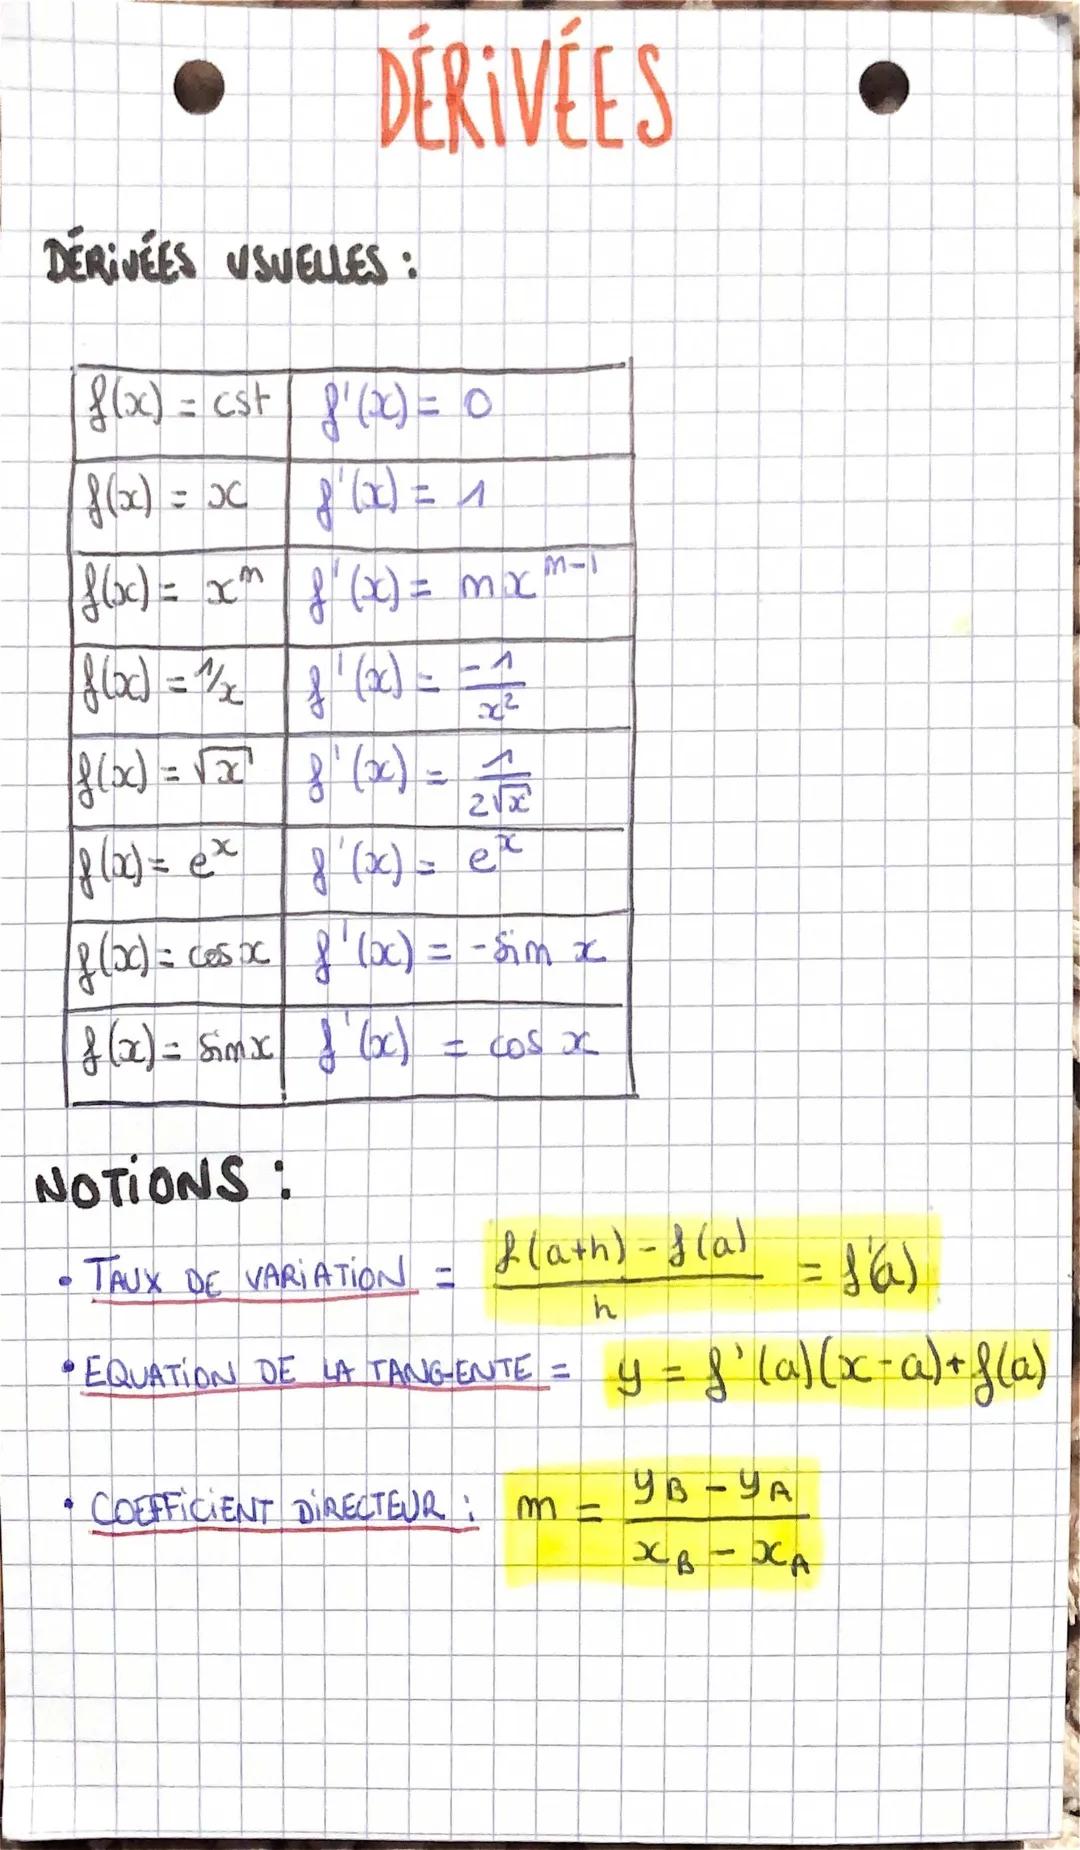 DÉRIVÉES
DÉRIVÉES USUELLES :
f(x) = cst f'(x) = 0
f(x) = x f'(x) = 1
f(x) = xⁿ f'(x) = nxⁿ⁻¹
f(x) = 1/x f'(x) = -1/x²
f(x) = √x f'(x) = 1/2√x
f(x) = eˣ f'(x) = eˣ
f(x) = cos x f'(x) = -sin x
f(x) = sin x f'(x) = cos x
NOTIONS :
• TAUX DE VARIATION = f(a+h) - f(a) / h = f'(a)
• EQUATION DE LA TANGENTE = y = f'(a)(x-a)+f(a)
• COEFFICIENT DIRECTEUR : m = yB - yA / xB - xA